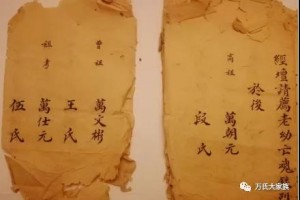 經壇請薦老幼亡魂 列
於後
高祖 萬朝元
段氏
曾祖 萬文彬
王氏
祖考 萬仕元
伍氏
万氏大家族